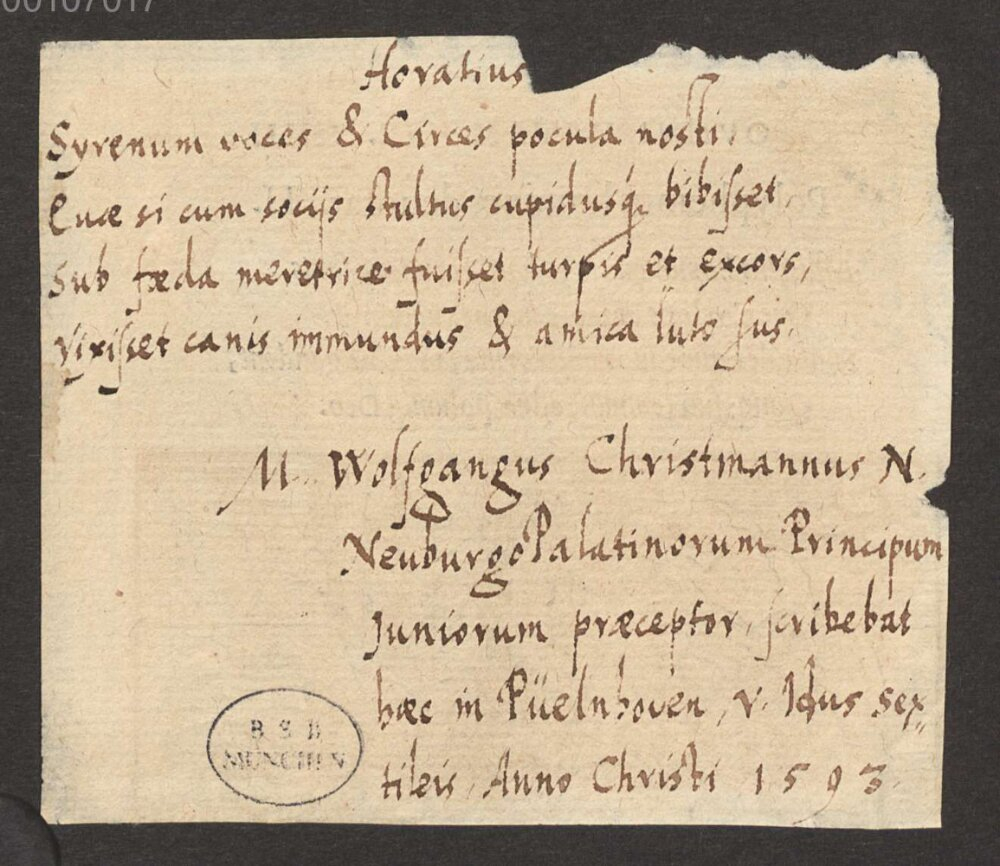 00107017
Horatius
Syrenum voces & Circes pocula nosti,
Quæ si cum socijs stultus cupidusq́; bibisset,
Sub fœda meretrice fuisset turpis et excors,
Vixisset canis immundus & amica luto sus.
M. Wolfgangus Christmannus N.
Neuburgo Palatinorum Principum
Juniorum præceptor, scribebat
hæc in Püelnhoven, v. Idus Sex⸗
tileis, Anno Christi 1593.
B S B
MÜNCHEN